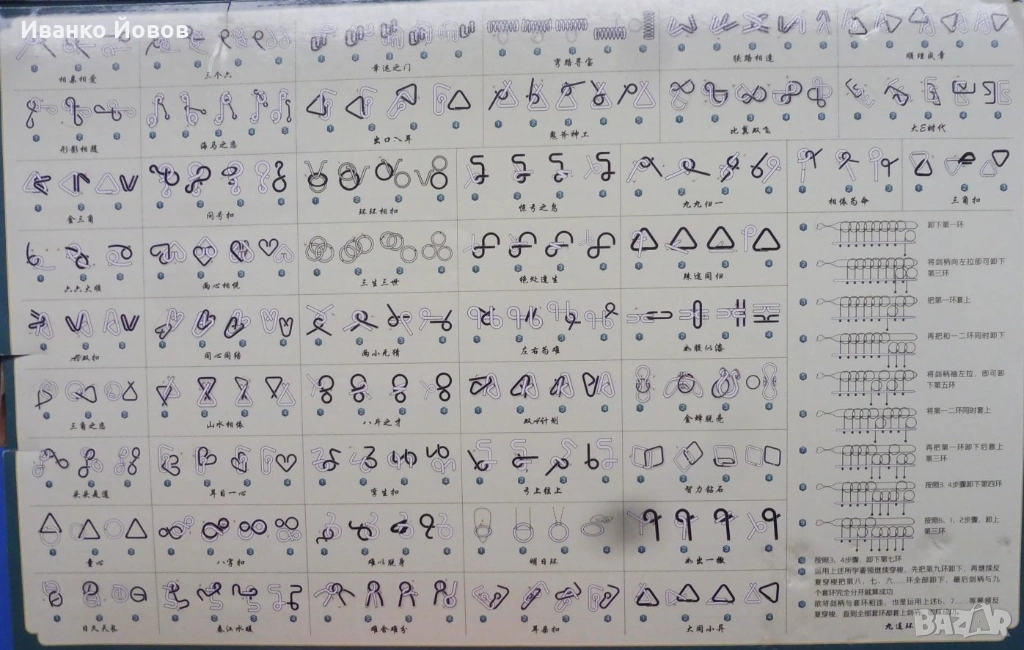 Иванко Йовов
相亲相爱
三个六
幸运之门
弯路寻宝
铁路相逢
顺理成章
形影相随
海马之恋
出口入耳
鬼斧神工
比翼双飞
大E时代
金三角
问号扣
环环相扣
惊号之悬
九九归一
相依为命
三角扣
六六大顺
两心相悦
三生三世
绝处逢生
殊途同归
同心同结
两小无猜
左右为难
如胶似漆
三角之恋
山水相依
八斗之才
双A计划
金蝉脱壳
头头是道
耳目一心
孪生扣
弓上弦上
智力钻石
童心
八字扣
难以脱身
明日环
如出一辙
日久天长
春江水暖
难舍难分
耳朵扣
大同小异
卸下第一环
将剑柄向左拉即可卸下
第三环
把第一环套上
再把和一二环同时卸下
将剑柄稍左拉，即可卸
下第五环
将第一二环同时套上
再把第一环卸下后套上
第三环
按照3.4步骤卸下第四环
按照6、1、2步骤，卸上
第三环
按照3、4步骤，卸下第七环
运用上述所学要领继续穿梭，先把第九环卸下，再继续反
复穿梭把第八、七、六......环全部卸下，最后剑柄与九
个套环完全分开就算成功
欲将剑柄与套环相连，也是运用上述6、7......等要领反
复穿梭，直到全部套环都套上剑
九连环
BAZAR